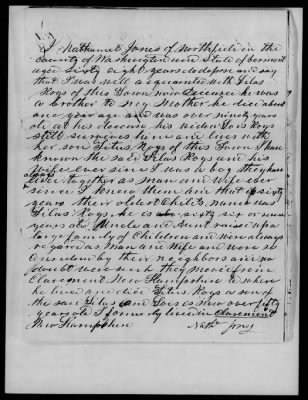 I Nathaniel Jones of Northfield in the
County of Washington and State of Vermont
aged Sixty eight years do depose and say
that I was well acquainted with Silas
Roys of this Town now Deceased he was
a brother to my Mother he died about
one year ago and was over ninety years
old at his decease his widow Lois Roys
Still survives him and lives with
her son Titus Roys of this Town I have
known the said Silas Roys and his
Wife ever since I was a boy they have
always lived together as man and wife ever
since I knew them and that is sixty
years their oldest Child, name was
Silas Roys he is sixty six or seven
years old Uncle and Aunt raised up a
large family of Children and were always
regarded as man and Wife and were so
considered by their neighbors and no
doubt were such they moved from
Claremont New Hampshire where
he lived and died Titus Roys a son of
the said Silas and Lois is now over fifty
years old I formerly lived in Claremont
New Hampshire Nath Jones